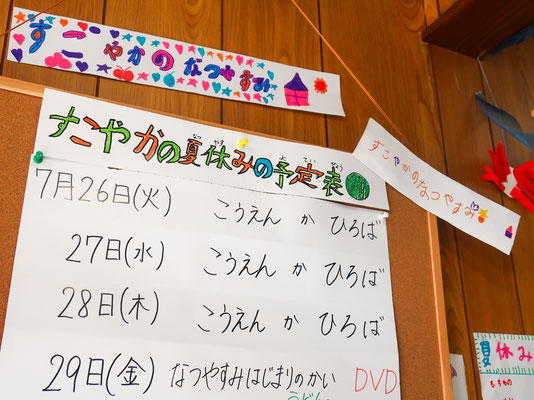 すこやかのなつやすみ
すこやかの夏休みの予定表
なつ やす よ てい ひょう
すこやかのなつやすみ
7月26日(火) こうえん か ひろば
27日(水) こうえん か ひろば
28日(木) こうえん か ひろば
29日(金) なつやすみはじまりのかい DVD
うどん
夏休み